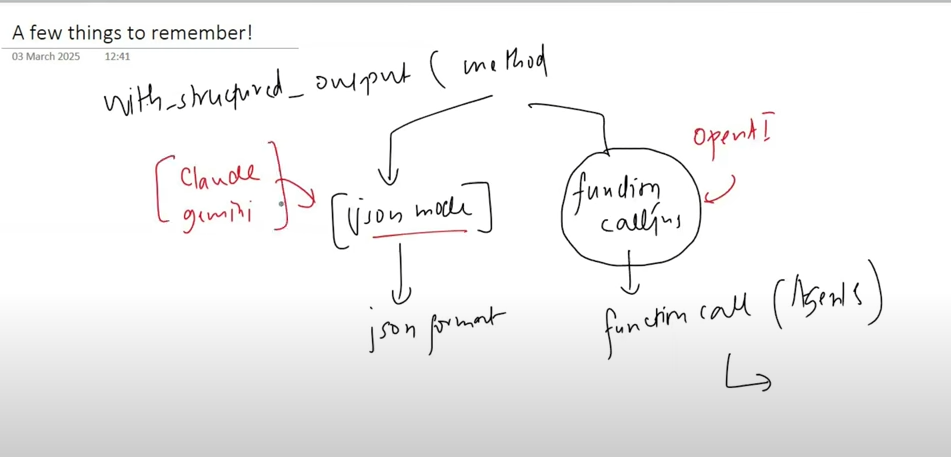 A few things to remember!
03 March 2025 12:41
with_structured_output ( method
OpenAI
Claude
gemini
[json mode]
function
calling
json format
function call (Agents)